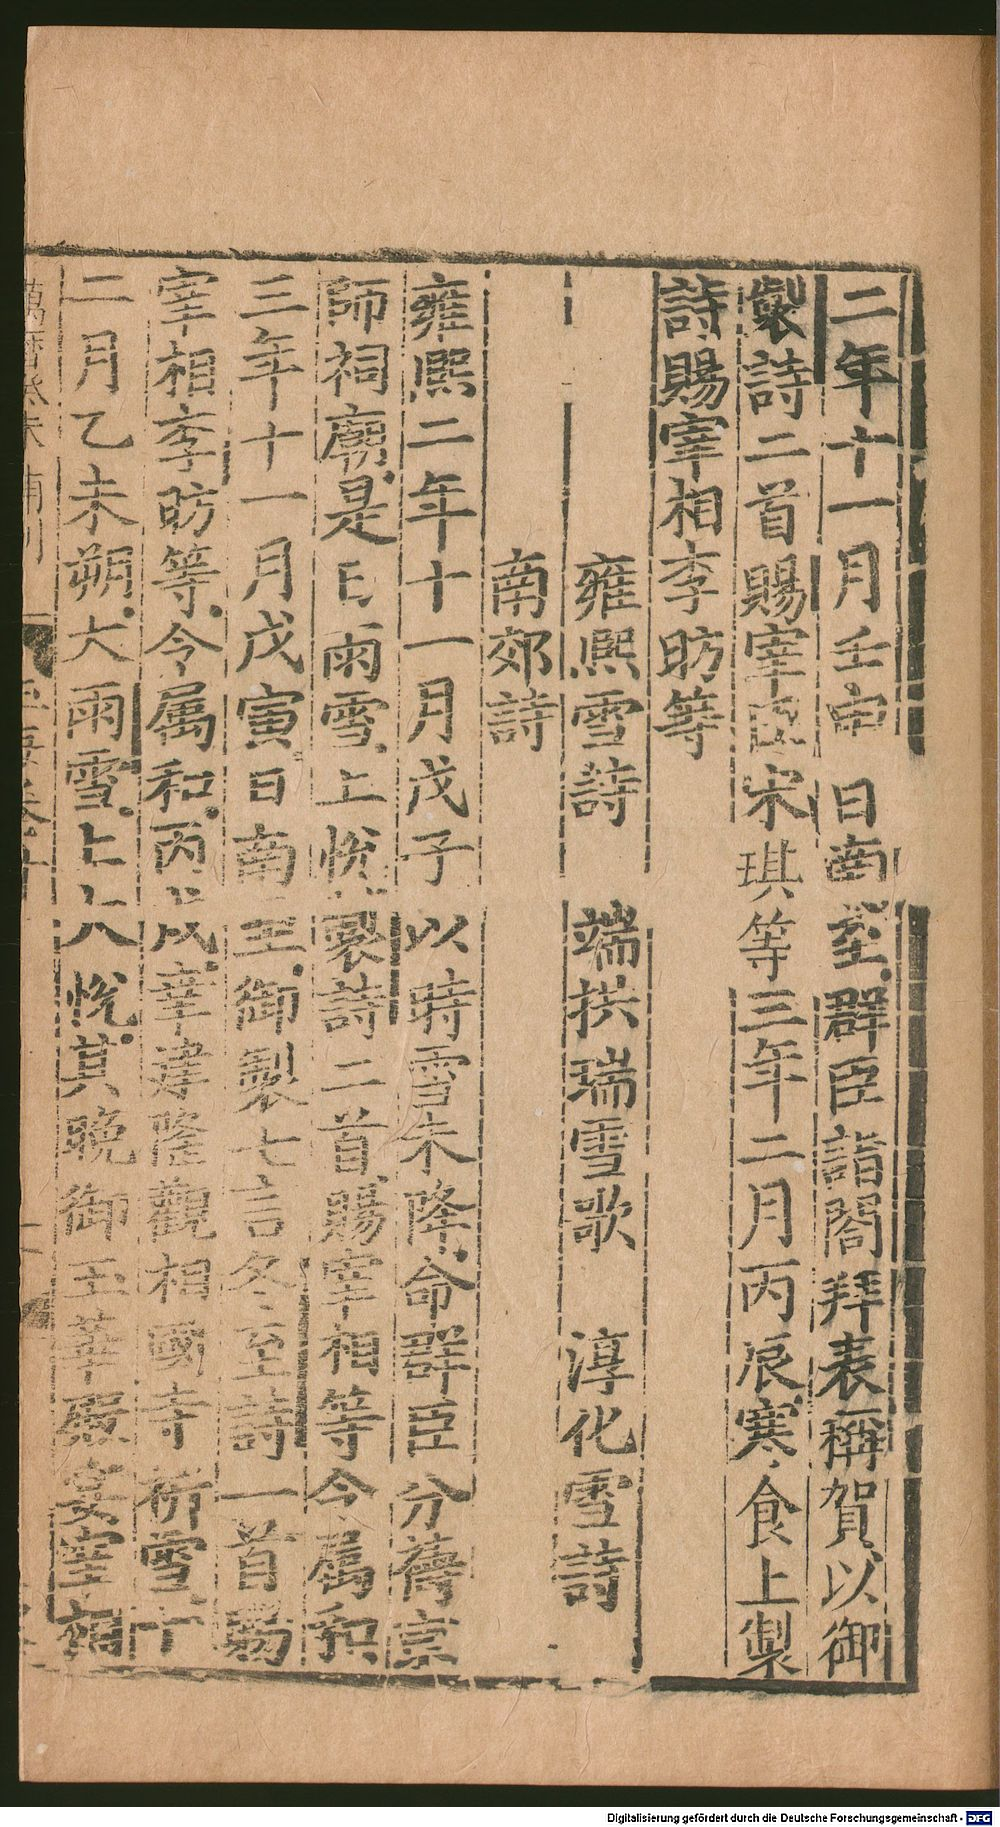 二年十一月壬申日南至群臣詣閤拜表稱賀以御
製詩二首賜宰臣宋琪等三年二月丙辰寒食上製
詩賜宰相李昉等
雍熙雪詩 端拱瑞雪歌 淳化雪詩
南郊詩
雍熙二年十一月戊子以時雪未降命群臣分禱京
師祠廟是日雨雪上悅製詩二首賜宰相等令屬和
三年十一月戊寅日南至御製七言冬至詩一首賜
宰相李昉等令屬和丙戌幸建隆觀相國寺祈雪十
二月乙未朔大雨雪上大悅其晚御玉華殿宴宰相
萬曆癸未南刊
Digitalisierung gefördert durch die Deutsche Forschungsgemeinschaft - DFG